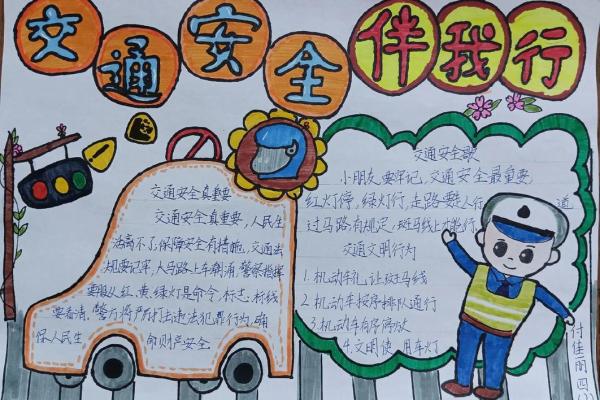 交通安全伴我行
交通安全真重要
交通安全真重要，人民生
活离不了，保障安全有措施，交通法
规要记牢，大马路上车辆涌，警察指挥
要服从，红、黄、绿灯是命令，标志、标线
要看清。警方将严打击违法犯罪行为，确
保人民生命财产安全
交通安全歌
小朋友，要牢记，交通安全最重要，
红灯停，绿灯行，走路要走人行道
过马路有规定，斑马线上才能行
交通文明行为
1.机动车礼让斑马线
2.机动车按序排队通行
3.机动车有序停放
4.文明使用车灯
付佳丽 四